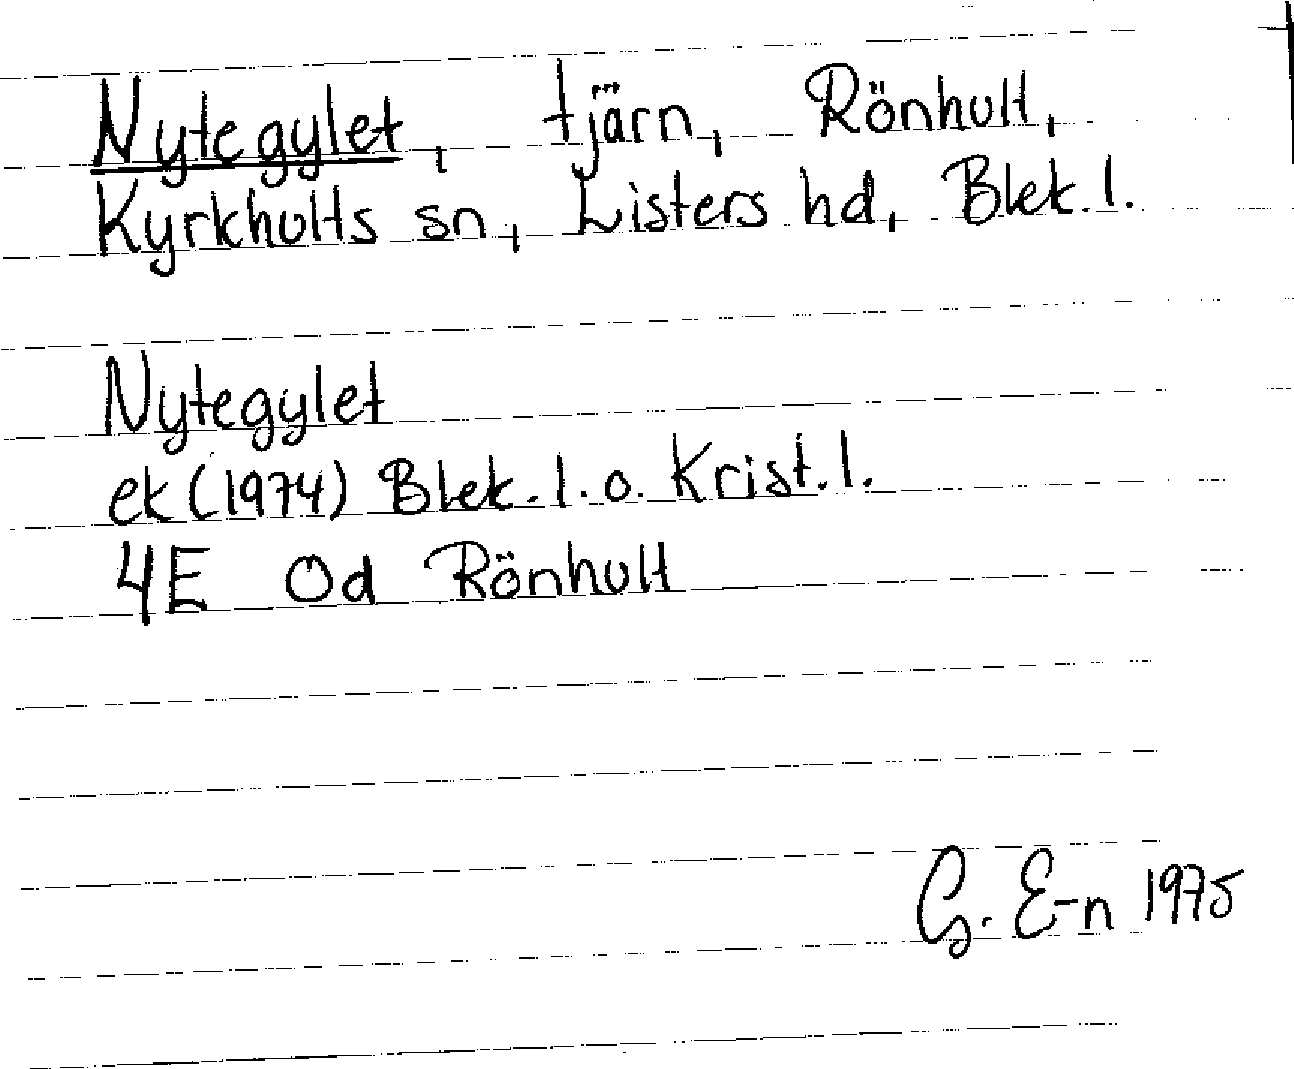 Nytegylet, tjärn, Rönhult,
Kyrkhults sn, Listers hd, Blek. l.
Nytegylet
ek (1974) Blek. l. o. Krist. l.
4E 0d Rönhult
G. E-n 1975